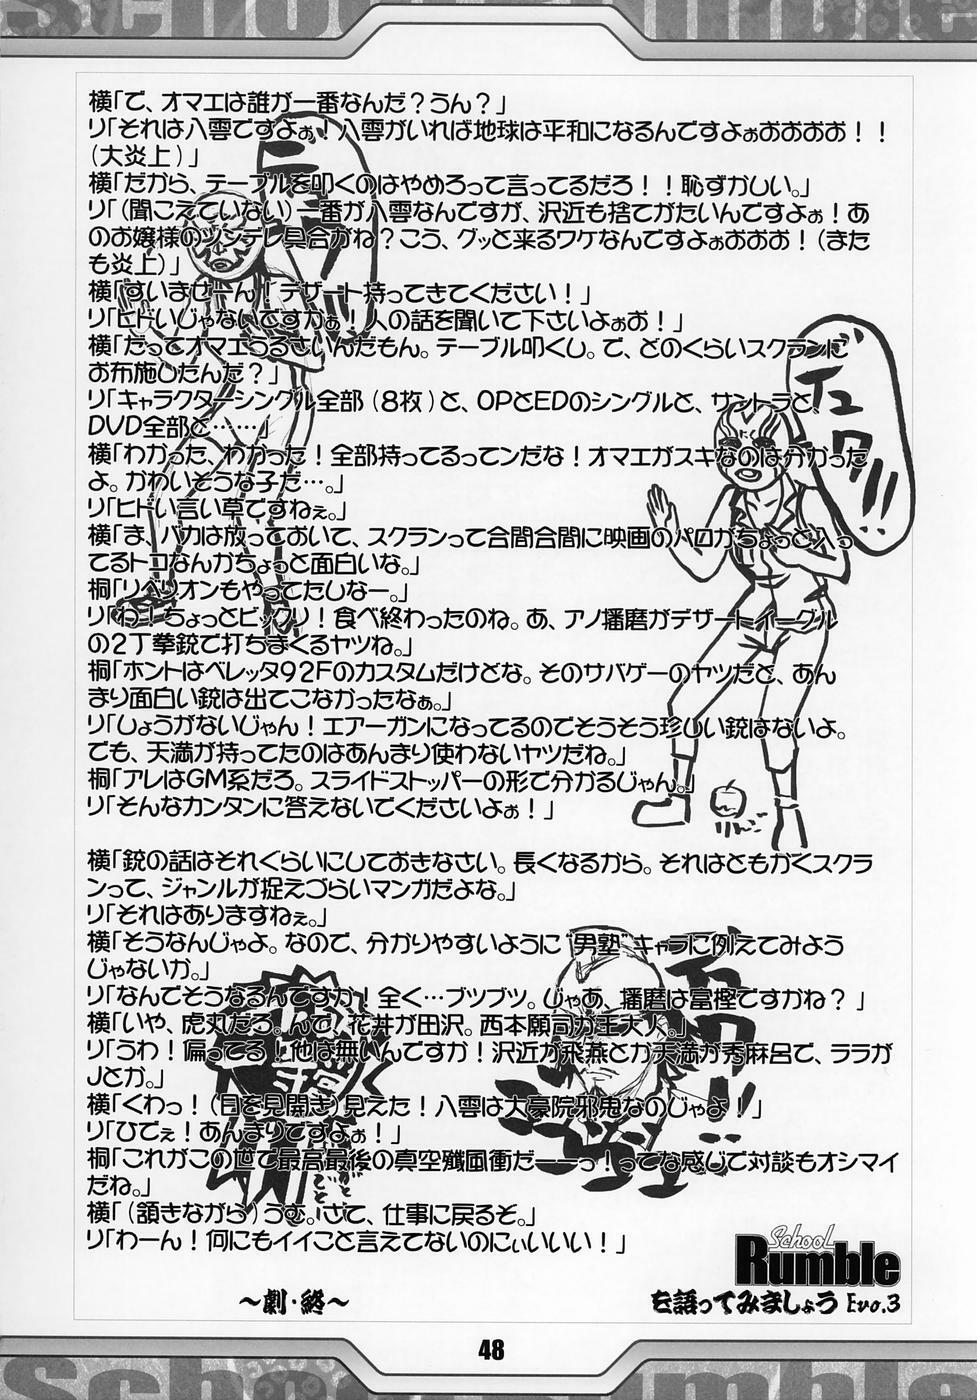 School Rumble
横「で、オマエは誰が一番なんだ？うん？」
リ「それは八雲ですよぉ！八雲がいれば地球は平和になるんですよぉおおおお！！
（大炎上）」
横「だから、テーブルを叩くのはやめろって言ってるだろ！！恥ずかしい。」
リ「（聞こえていない）一番が八雲なんですが、沢近も捨てがたいんですよぉ！あ
のお嬢様のツンデレ具合がね？こう、グッと来るワケなんですよぉおおお！（また
も炎上）」
横「すいませーん！デザート持ってきてください！」
リ「ヒドいじゃないですかぁ！人の話を聞いて下さいよぉお！」
横「だってオマエうるさいんだもん。テーブル叩くし。で、どのくらいスクランに
お布施したんだ？」
リ「キャラクターシングル全部（８枚）と、OPとEDのシングルと、サントラと、
DVD全部と……」
横「わかった、わかった！全部持ってるってンだな！オマエがスキなのは分かった
よ。かわいそうな子だ…。」
リ「ヒドい言い草ですねぇ。」
横「ま、バカは放っておいて、スクランって合間合間に映画のパロがちょっと入っ
てるトコなんかちょっと面白いな。」
桐「リベリオンもやってたしなー。」
リ「わ！ちょっとビックリ！食べ終わったのね。あ、アノ播磨がデザートイーグル
の２丁拳銃で打ちまくるヤツね。」
桐「ホントはベレッタ９２Fのカスタムだけどな。そのサバゲーのヤツだと、あん
まり面白い銃は出てこなかったなぁ。」
リ「しょうがないじゃん！エアーガンになってるのでそうそう珍しい銃はないよ。
でも、天満が持ってたのはあんまり使わないヤツだね。」
桐「アレはGM系だろ。スライドストッパーの形で分かるじゃん。」
リ「そんなカンタンに答えないでくださいよぉ！」
りんご
横「銃の話はそれぐらいにしておきなさい。長くなるから。それはともかくスクラ
ンって、ジャンルが捉えづらいマンガだよな。」
リ「それはありますねぇ。」
横「そうなんじゃよ。なので、分かりやすいように“男塾”キャラに例えてみよう
じゃないか。」
リ「なんでそうなるんですか！全く…ブツブツ。じゃあ、播磨は富樫ですかね？」
横「いや、虎丸だろ。んで、花井が田沢。西本願司が王大人。」
リ「うわ！偏ってる！他は無いんですか！沢近が飛燕とか天満が秀麻呂で、ララが
Jとか。」
横「くわっ！（目を見開き）見えた！八雲は大豪院邪鬼なのじゃよ！」
リ「ひでぇ！あんまりですよぉ！」
桐「これがこの世で最高最後の真空殲風衝だーーっ！ってな感じで対談もオシマイ
だね。」
横「（頷きながら）うむ。さて、仕事に戻るぞ。」
リ「わーん！何にもイイこと言えてないのにぃいいい！」
School
Rumble
～劇・終～
を語ってみましょう Evo.3
48
School Rumble